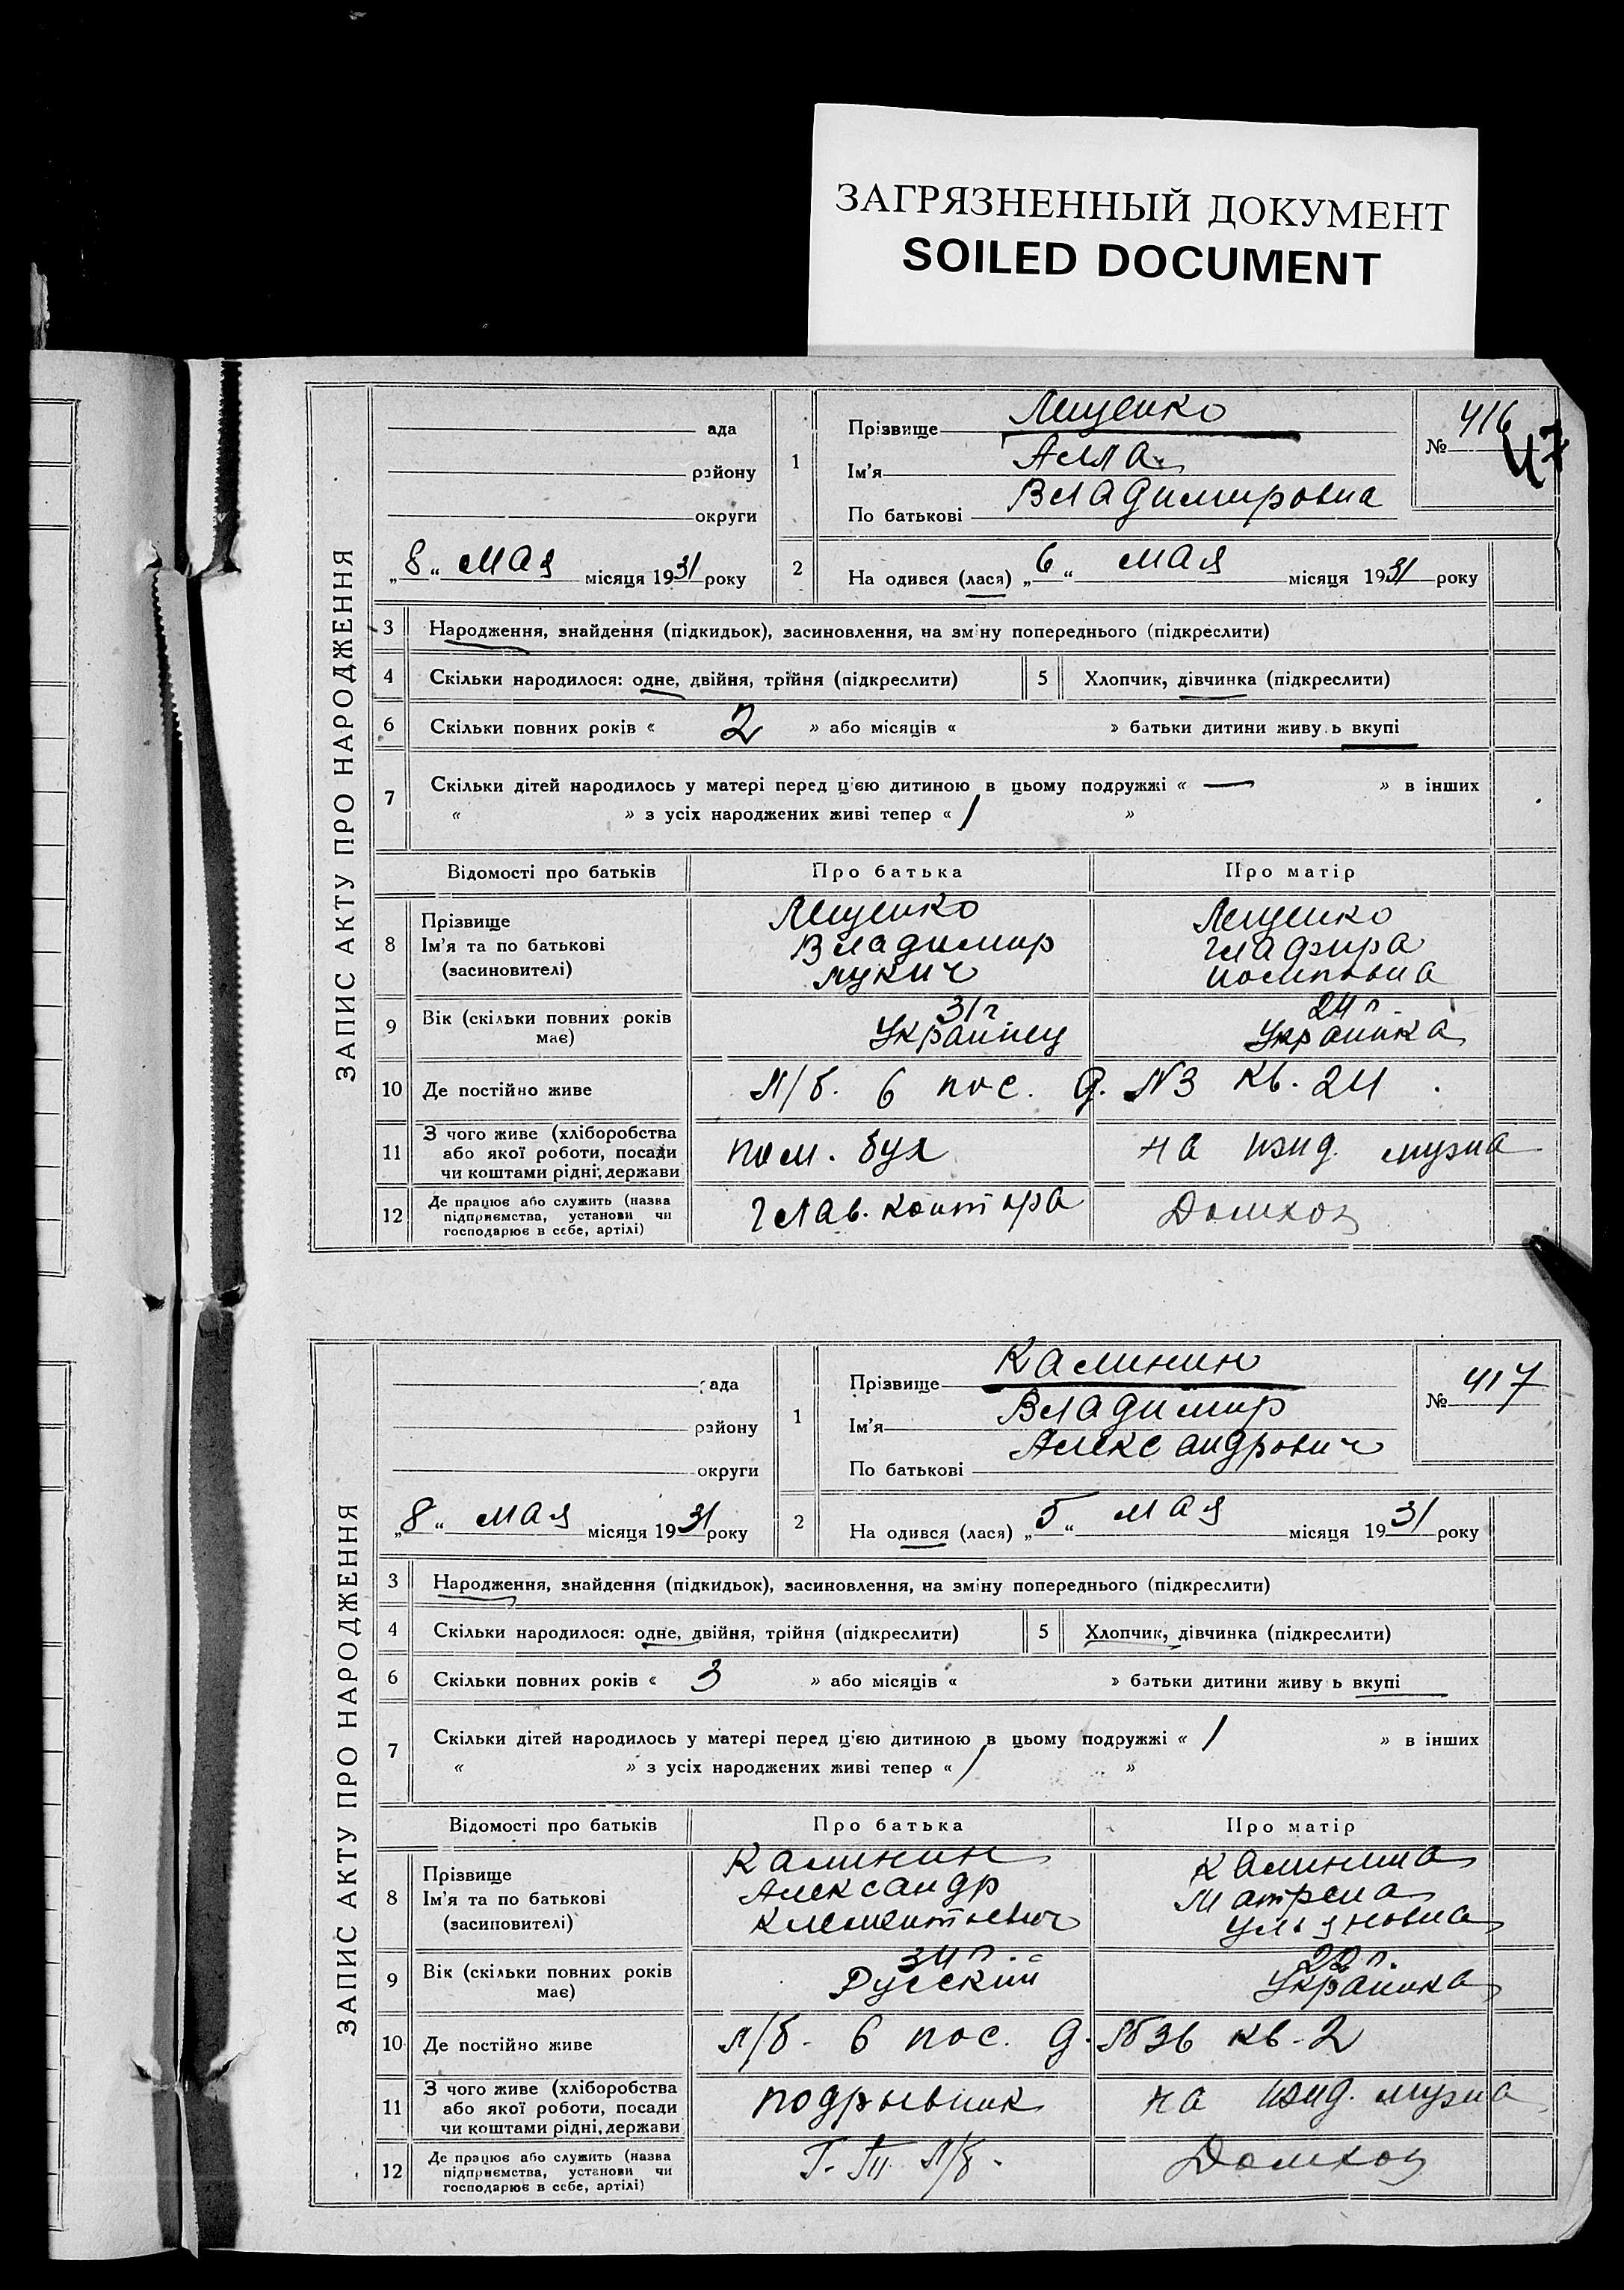 ЗАГРЯЗНЕННЫЙ ДОКУМЕНТ
SOILED DOCUMENT
ЗАПИС АКТУ ПРО НАРОДЖЕННЯ
ада
району
округи
„8“ мая місяця 1931 року
1
Прізвище Лещенко
Ім’я Алла
По батькові Владимировна
№ 416
47
2
На одився (лася) „6“ мая місяця 1931 року
3 Народження, знайдення (підкидьок), засиновлення, на зміну попереднього (підкреслити)
4 Скільки народилося: одне, двійня, трійня (підкреслити) 5 Хлопчик, дівчинка (підкреслити)
6 Скільки повних років « 2 » або місяців « » батьки дитини живу ь вкупі
7 Скільки дітей народилось у матері перед ц'єю дитиною в цьому подружжі « — » в інших
« » з усіх народжених живі тепер « 1 »
Відомості про батьків Про батька Про матір
8 Прізвище Лещенко Лещенко
Ім’я та по батькові Владимир Глафира
(засиновителі) Лукич Иосиповна
9 Вік (скільки повних років має) 31 г. 24 г.
Украинец Украинка
10 Де постійно живе Л/б. 6 пос. д. №3 кв. 24
11 З чого живе (хліборобства
або якої роботи, посади
чи коштами рідні, держави
пом. бух на изид. мужа
12 Де працює або служить (назва
підприємства, установи чи
господарює в себе, артілі)
Глав. контора Домхоз
ЗАПИС АКТУ ПРО НАРОДЖЕННЯ
ада
району
округи
„8“ мая місяця 1931 року
1
Прізвище Калинин
Ім’я Владимир
По батькові Александрович
№ 417
2
На одився (лася) „5“ мая місяця 1931 року
3 Народження, знайдення (підкидьок), засиновлення, на зміну попереднього (підкреслити)
4 Скільки народилося: одне, двійня, трійня (підкреслити) 5 Хлопчик, дівчинка (підкреслити)
6 Скільки повних років « 3 » або місяців « » батьки дитини живу ь вкупі
7 Скільки дітей народилось у матері перед ц'єю дитиною в цьому подружжі « 1 » в інших
« » з усіх народжених живі тепер « 1 »
Відомості про батьків Про батька Про матір
8 Прізвище Калинин Калинина
Ім’я та по батькові Александр Матрена
(засиновителі) Клементьевич Ульяновна
9 Вік (скільки повних років має) 34 г. 22 г.
Русский Украинка
10 Де постійно живе Л/б. 6 пос. д. №36 кв. 2
11 З чого живе (хліборобства
або якої роботи, посади
чи коштами рідні, держави
подрывник на изид. мужа
12 Де працює або служить (назва
підприємства, установи чи
господарює в себе, артілі)
Л/б. Домхоз